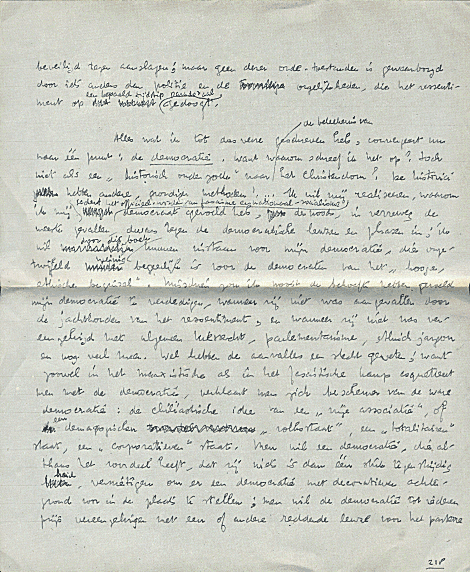 beveiligd tegen aanslagen; maar geen dezer orde-toestanden is gewaarborgd
door iets anders dan politie en de ongelijkheden, die het ressenti-
ment op een bepaald tijdstip gedoogt.
de betekenis van
Alles wat ik tot dusverre geschreven heb, convergeert nu
naar één punt: de democratie. Want waarom schreef ik het op? Toch
niet als een „historisch onderzoek" naar het Christendom? De historici
hebben andere, grondiger methoden!... Ik wil mij realiseren, waarom
ik mij sedert het democraat gevoeld heb, in verreweg de
meeste gevallen dwars tegen de democratische leuzen en phrasen in; ik
wil door dit boek kunnen instaan voor mijn democratie, die onge-
twijfeld weinig begeerlijk is voor de democraten van het „hooge,
ethische beginsel". Misschien zou ik nooit de behoefte hebben gevoeld
mijn democratie te verdedigen, wanneer zij niet was aangevallen door
de jachthonden van het ressentiment, en wanneer zij niet was ver-
eenzelvigd met algemeen kiesrecht, parlementarisme, ethisch jargon
en nog veel meer. Wel hebben de aanvallen een slecht geweten; want
zoowel in het marxistische als in het fascistische kamp coquetteert
men met de democratie, verklaart men zich beschermer van de ware
democratie: de chiliastische idee van een „vrije associatie", of
een demagogischen „volksstaat", een „totalitairen"
staat, een „corporatieven" staat. Men wil een democratie, die al-
thans het voordeel heeft, dat zij niets is dan één stuk tegenstrijdig-
heid, vernietigen om er een democratie met decoratieven achter-
grond voor in de plaats te stellen; men wil de democratie tot iederen
prijs vereenzelvigen met een of andere reddende leuze voor het
218